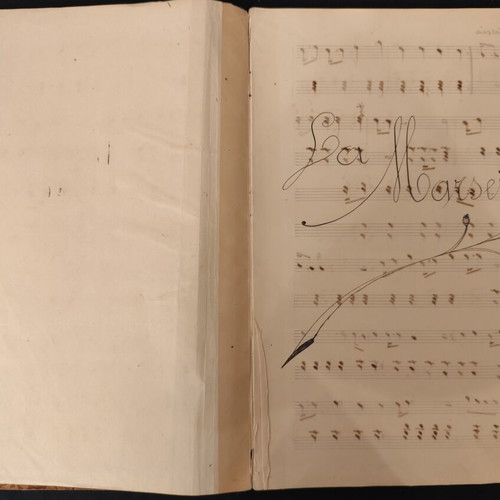 La
Marse